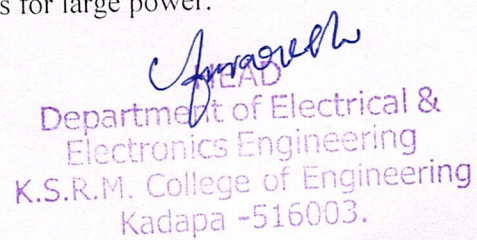 s for large power.
HEAD
Department of Electrical &
Electronics Engineering
K.S.R.M. College of Engineering
Kadapa -516003.